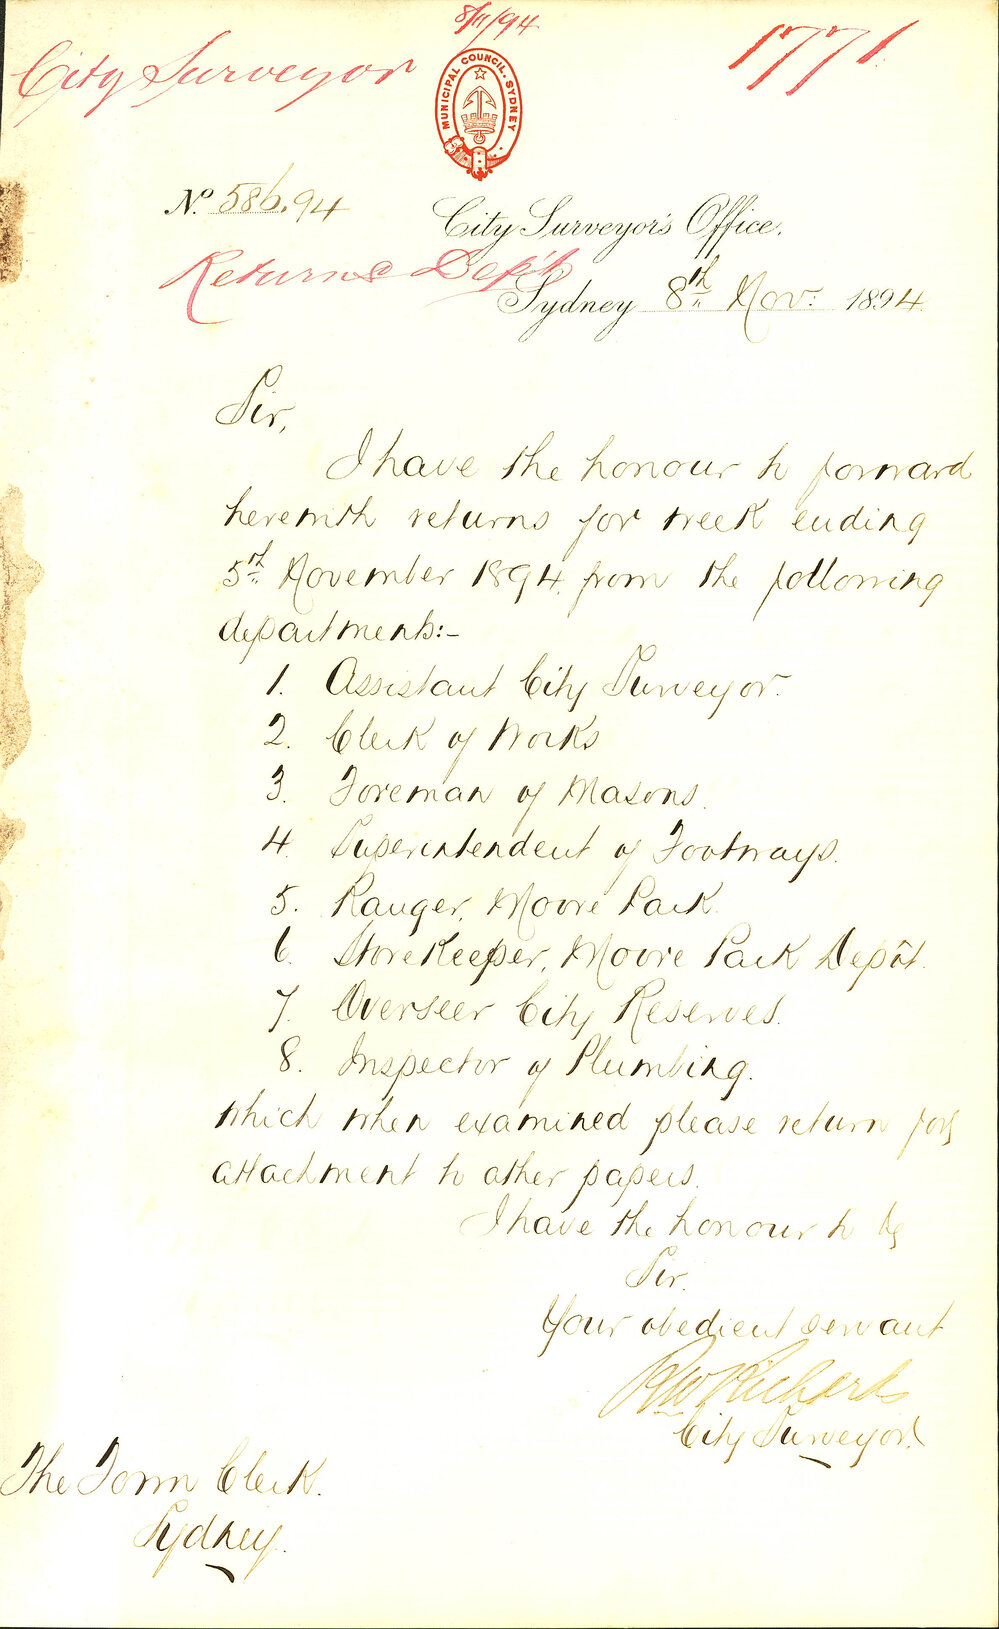 8/11/94
City Surveyor
1771
MUNICIPAL COUNCIL. SYDNEY
No. 586.94
City Surveyor's Office.
Returns Dep't
Sydney 8th Nov: 1894
Sir,
I have the honour to forward
herewith returns for week ending
5th November 1894, from the following
departments:-
1. Assistant City Surveyor.
2. Clerk of Works
3. Foreman of Masons.
4. Superintendent of Footways.
5. Ranger, Moore Park.
6. Storekeeper, Moore Park Depôt.
7. Overseer City Reserves.
8. Inspector of Plumbing.
which when examined please return for
attachment to other papers.
I have the honour to be
Sir.
Your obedient servant
RW Richards
City Surveyor.
The Town Clerk.
Sydney.